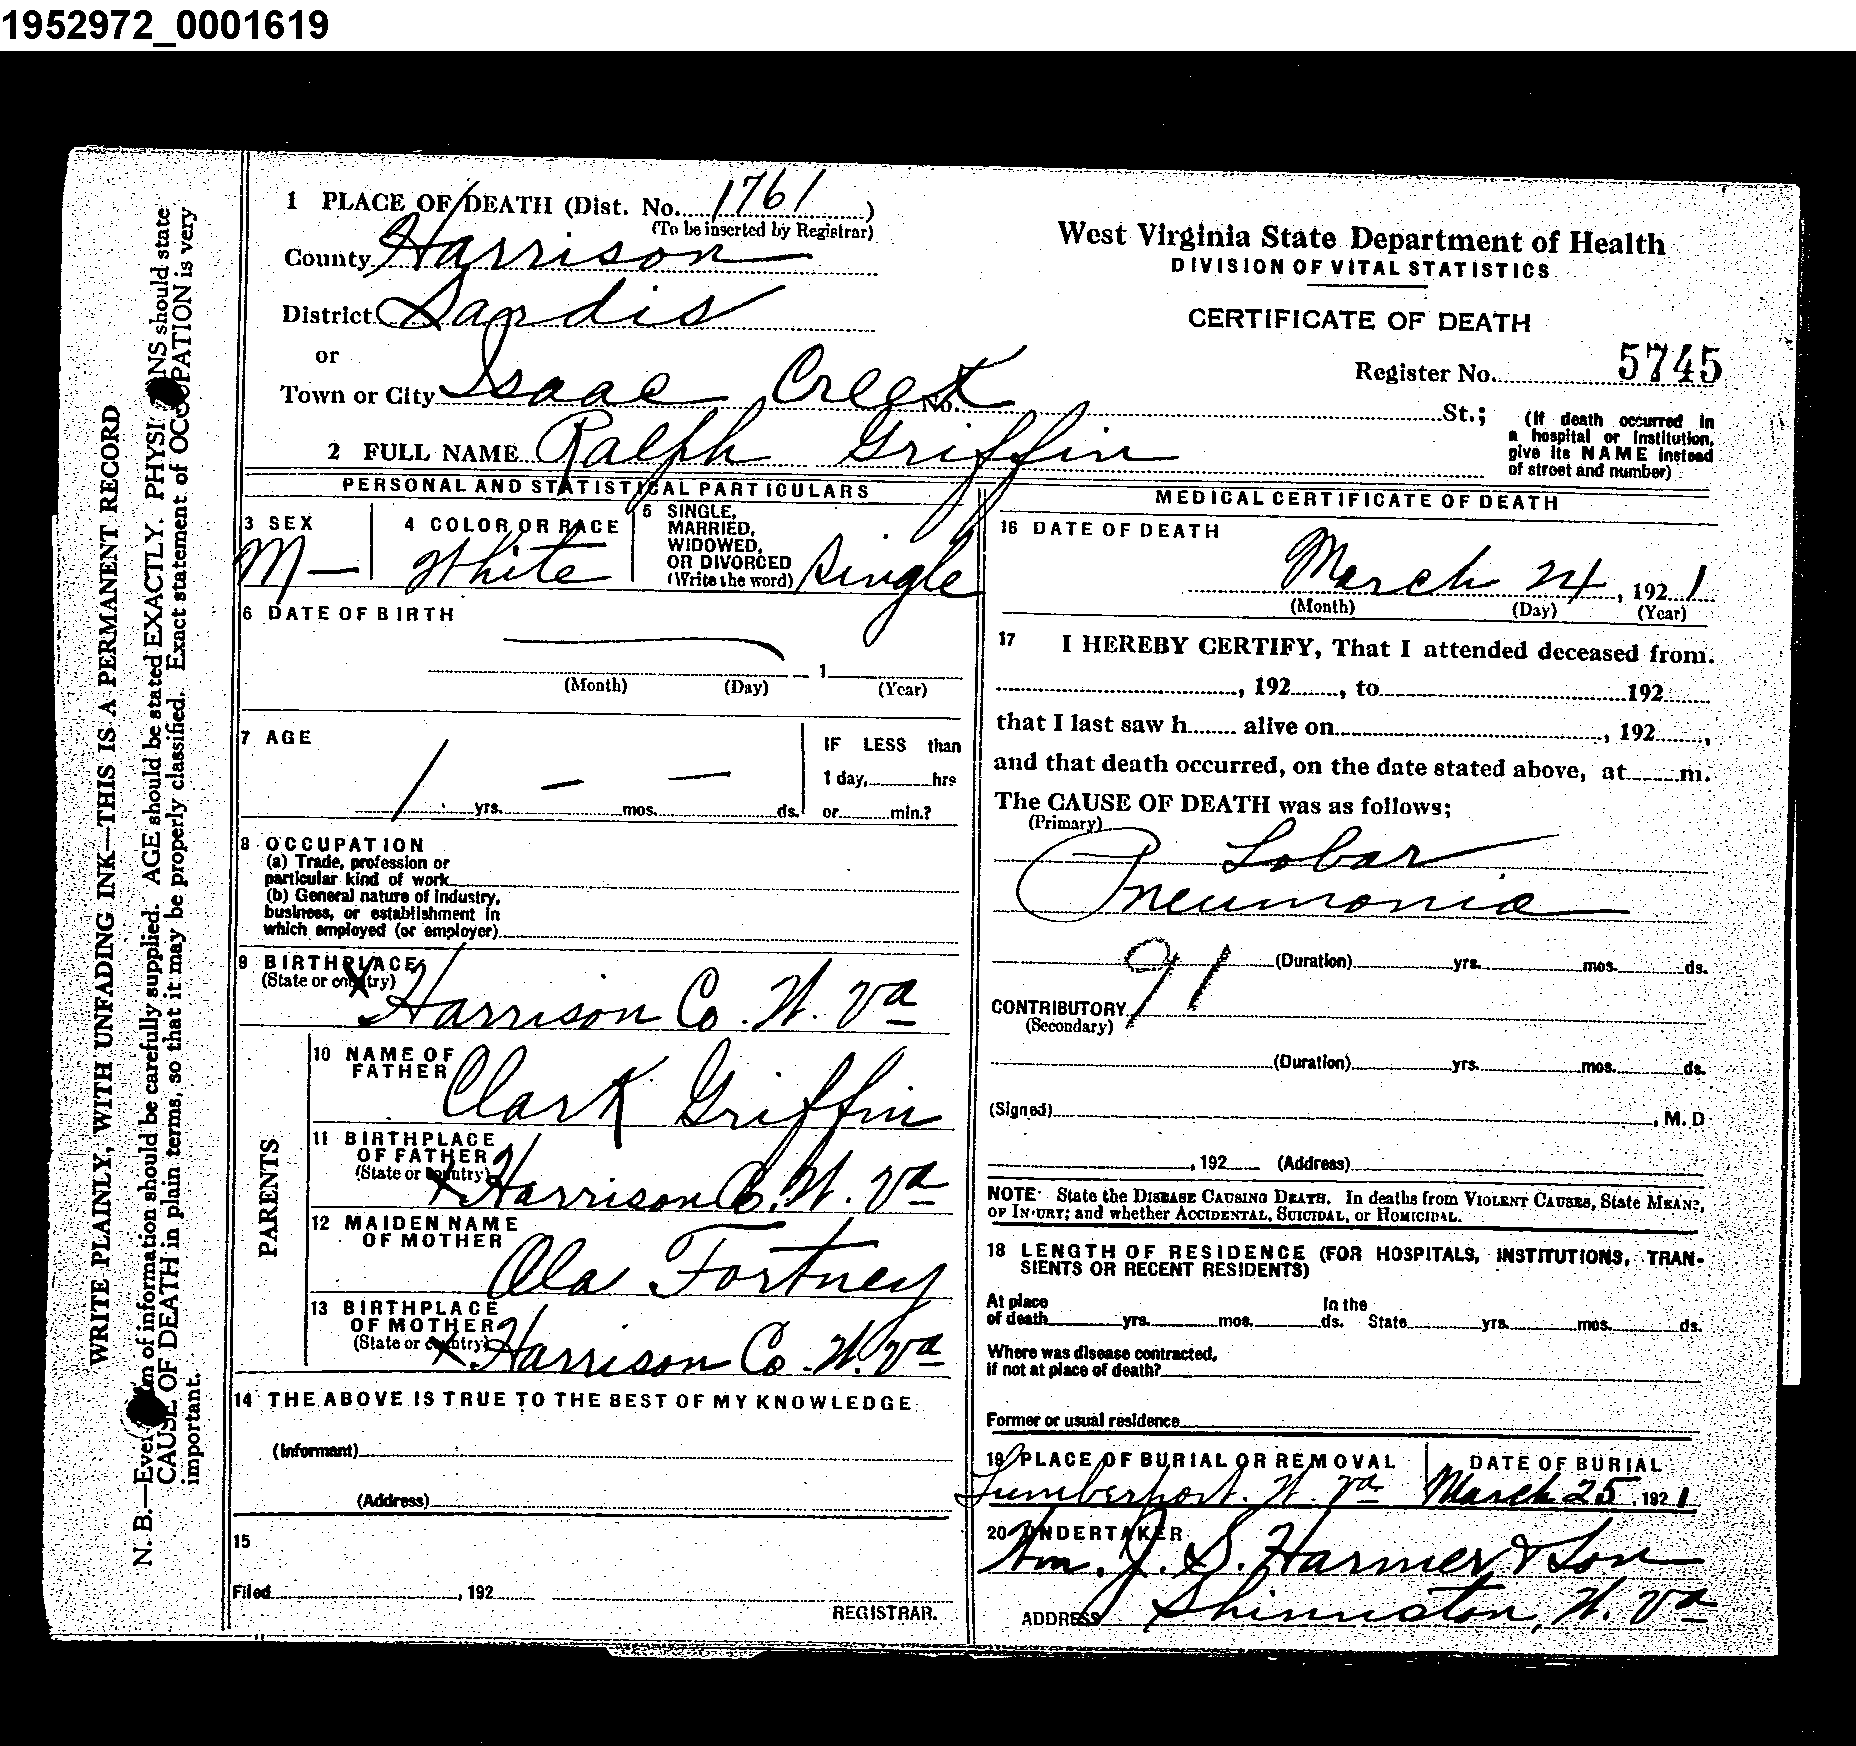 1952972_0001619
1 PLACE OF DEATH (Dist. No. 1761 )
(To be inserted by Registrar)
County Harrison
District Sardis
or
Town or City Isaac Creek No. St.;
(If death occurred in
a hospital or institution,
give its NAME instead
of street and number)
West Virginia State Department of Health
DIVISION OF VITAL STATISTICS
CERTIFICATE OF DEATH
Register No. 5745
2 FULL NAME Ralph Griffin
PERSONAL AND STATISTICAL PARTICULARS
3 SEX
M —
4 COLOR OR RACE
White
5 SINGLE,
MARRIED,
WIDOWED,
OR DIVORCED
(Write the word) Single
6 DATE OF BIRTH
1
(Month) (Day) (Year)
7 AGE
1 yrs. — mos. — ds.
IF LESS than
1 day, hrs
or min.?
8 OCCUPATION
(a) Trade, profession or
particular kind of work
(b) General nature of industry,
business, or establishment in
which employed (or employer)
9 BIRTHPLACE
(State or country)
Harrison Co. W. Va
PARENTS
10 NAME OF
FATHER Clark Griffin
11 BIRTHPLACE
OF FATHER
(State or country) Harrison Co. W. Va
12 MAIDEN NAME
OF MOTHER
Ola Fortney
13 BIRTHPLACE
OF MOTHER
(State or country) Harrison Co. W. Va
14 THE ABOVE IS TRUE TO THE BEST OF MY KNOWLEDGE
(Informant)
(Address)
15
Filed , 192
REGISTRAR.
MEDICAL CERTIFICATE OF DEATH
16 DATE OF DEATH
March 24 , 192 1
(Month) (Day) (Year)
17 I HEREBY CERTIFY, That I attended deceased from.
, 192 , to 192
that I last saw h alive on , 192 ,
and that death occurred, on the date stated above, at m.
The CAUSE OF DEATH was as follows;
(Primary)
Lobar
Pneumonia
91
(Duration) yrs. mos. ds.
CONTRIBUTORY
(Secondary)
(Duration) yrs. mos. ds.
(Signed) , M. D
, 192 (Address)
NOTE State the DISEASE CAUSING DEATH. In deaths from VIOLENT CAUSES, State MEANS,
OF INJURY; and whether ACCIDENTAL, SUICIDAL, or HOMICIDAL.
18 LENGTH OF RESIDENCE (FOR HOSPITALS, INSTITUTIONS, TRAN-
SIENTS OR RECENT RESIDENTS)
At place
of death yrs. mos. ds.
In the
State yrs. mos. ds.
Where was disease contracted,
if not at place of death?
Former or usual residence
19 PLACE OF BURIAL OR REMOVAL
Lumberport. W. Va
DATE OF BURIAL
March 25 , 192 1
20 UNDERTAKER
Wm. J. S. Harmer & Son
ADDRESS Shinnston, W. Va
WRITE PLAINLY, WITH UNFADING INK—THIS IS A PERMANENT RECORD
N. B.—Ever m of information should be carefully supplied. AGE should be stated EXACTLY. PHYSI NS should state
CAUSE OF DEATH in plain terms, so that it may be properly classified. Exact statement of OCCUPATION is very
important.